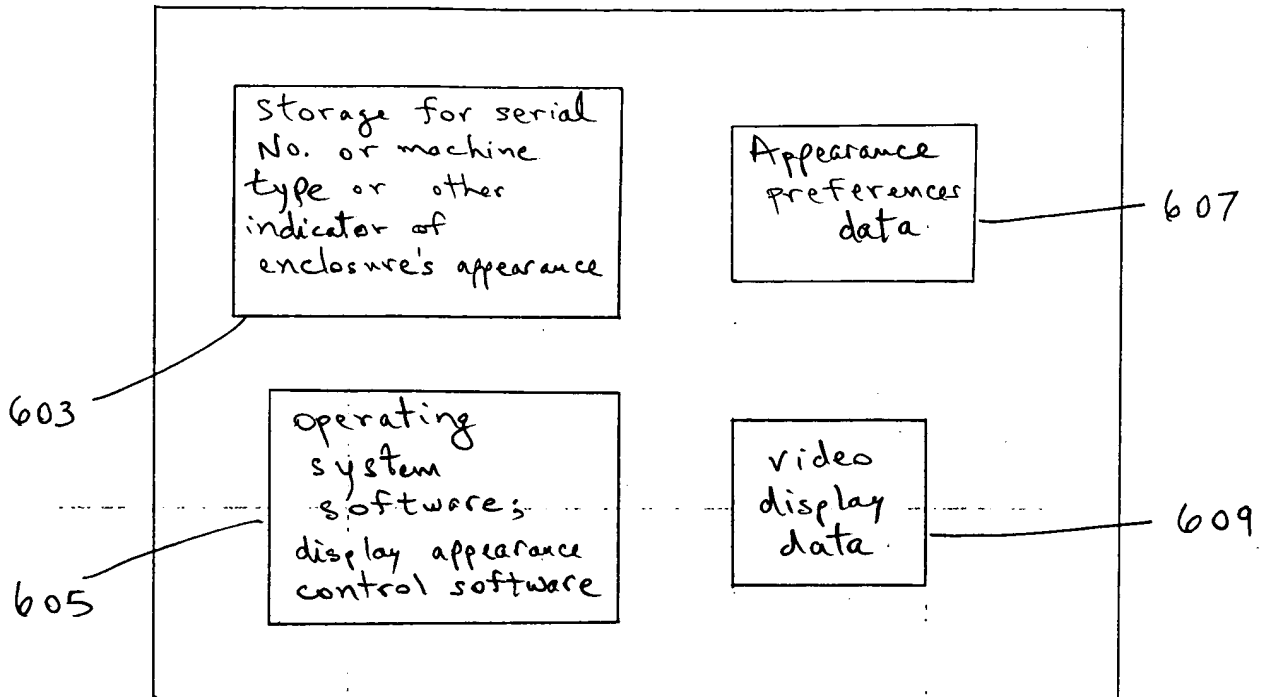 Storage for serial
No. or machine
type or other
indicator of
enclosure's appearance
603
Appearance
preferences
data.
607
operating
system
software;
display appearance
control software
605
video
display
data.
609